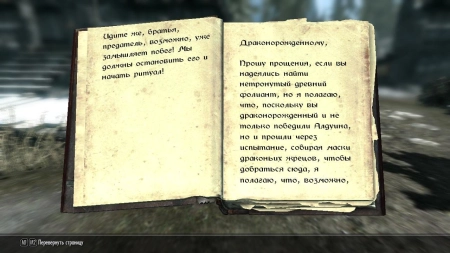 Идите же, братья,
предатель, возможно, уже
замышляет побег! Мы
должны остановить его и
начать ритуал!
Драконорожденному,
Прошу прощения, если вы
надеялись найти
нетронутый древний
фолиант, но я полагаю,
что, поскольку вы
драконорожденный и не
только победили Алдуина,
но и прошли через
испытание, собирая маски
драконьих жрецов, чтобы
добраться сюда, я
полагаю, что, возможно,
Перевернуть страницу